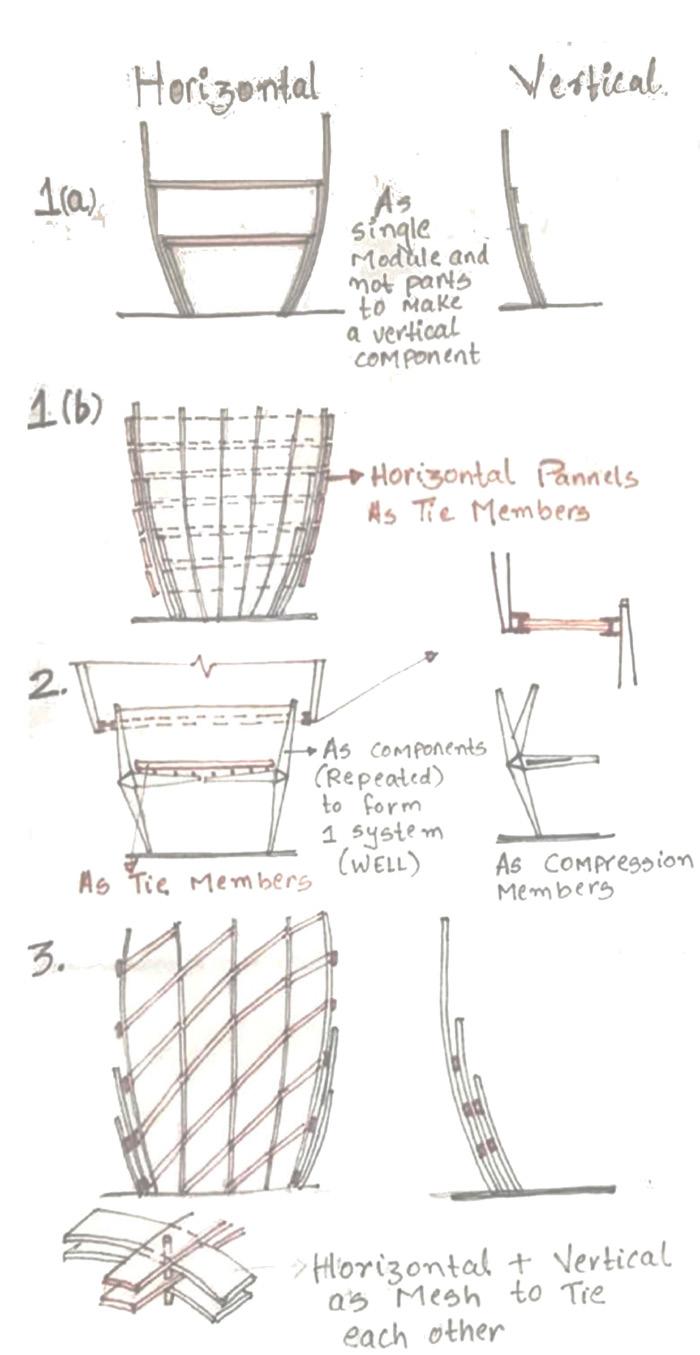 Horizontal
Vertical.
1(a)
As
single
Module and
not parts
to make
a vertical
component
1(b)
Horizontal Pannels
As Tie Members
2.
As components
(Repeated)
to form
1 system
(WELL)
As Tie Members
As compression
Members
3.
Horizontal + Vertical
as Mesh to Tie
each other